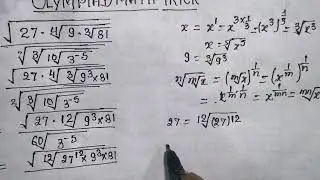 OLYMPIAD MATH TRICK
√(27 · ∜(9 · ∛81))
√(∛(10√(3⁻⁵)))
√(27 · ∜(∛(9³×81)))
²√(³√(10√(3⁻⁵)))
√(27 · ¹²√(9³×81))
⁶⁰√(3⁻⁵)
√(¹²√(27¹²×9³×81))
x = x¹ = x^(3×1/3) = (x³)^(1/3)
x = ∛(x³)
9 = ∛(9³)
ᵐ√(ⁿ√x) = (ᵐ√x)^(1/n) = (x^(1/m))^(1/n)
= x^(1/m · 1/n) = x^(1/mn) = ᵐⁿ√x
27 = ¹²√((27)¹²)